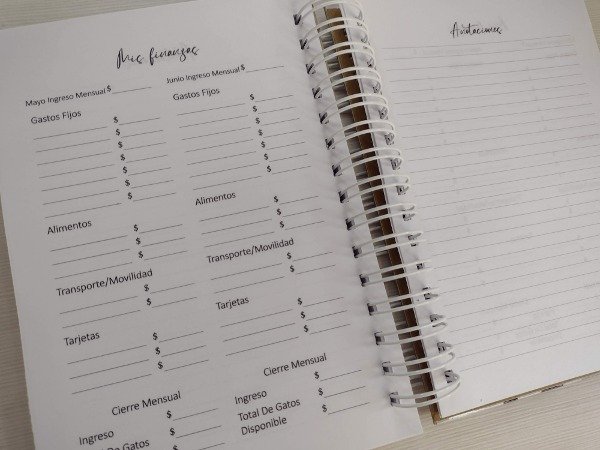 Mis finanzas
Mayo Ingreso Mensual $
Gastos Fijos
$
$
$
$
$
$
$
Alimentos
$
$
$
Transporte/Movilidad
$
$
Tarjetas
$
$
$
Cierre Mensual
Ingreso $
De Gatos $
$
Junio Ingreso Mensual $
Gastos Fijos
$
$
$
$
$
$
$
Alimentos
$
$
$
Transporte/Movilidad
$
$
Tarjetas
$
$
$
Cierre Mensual
Ingreso $
Total De Gatos $
Disponible $
Anotaciones